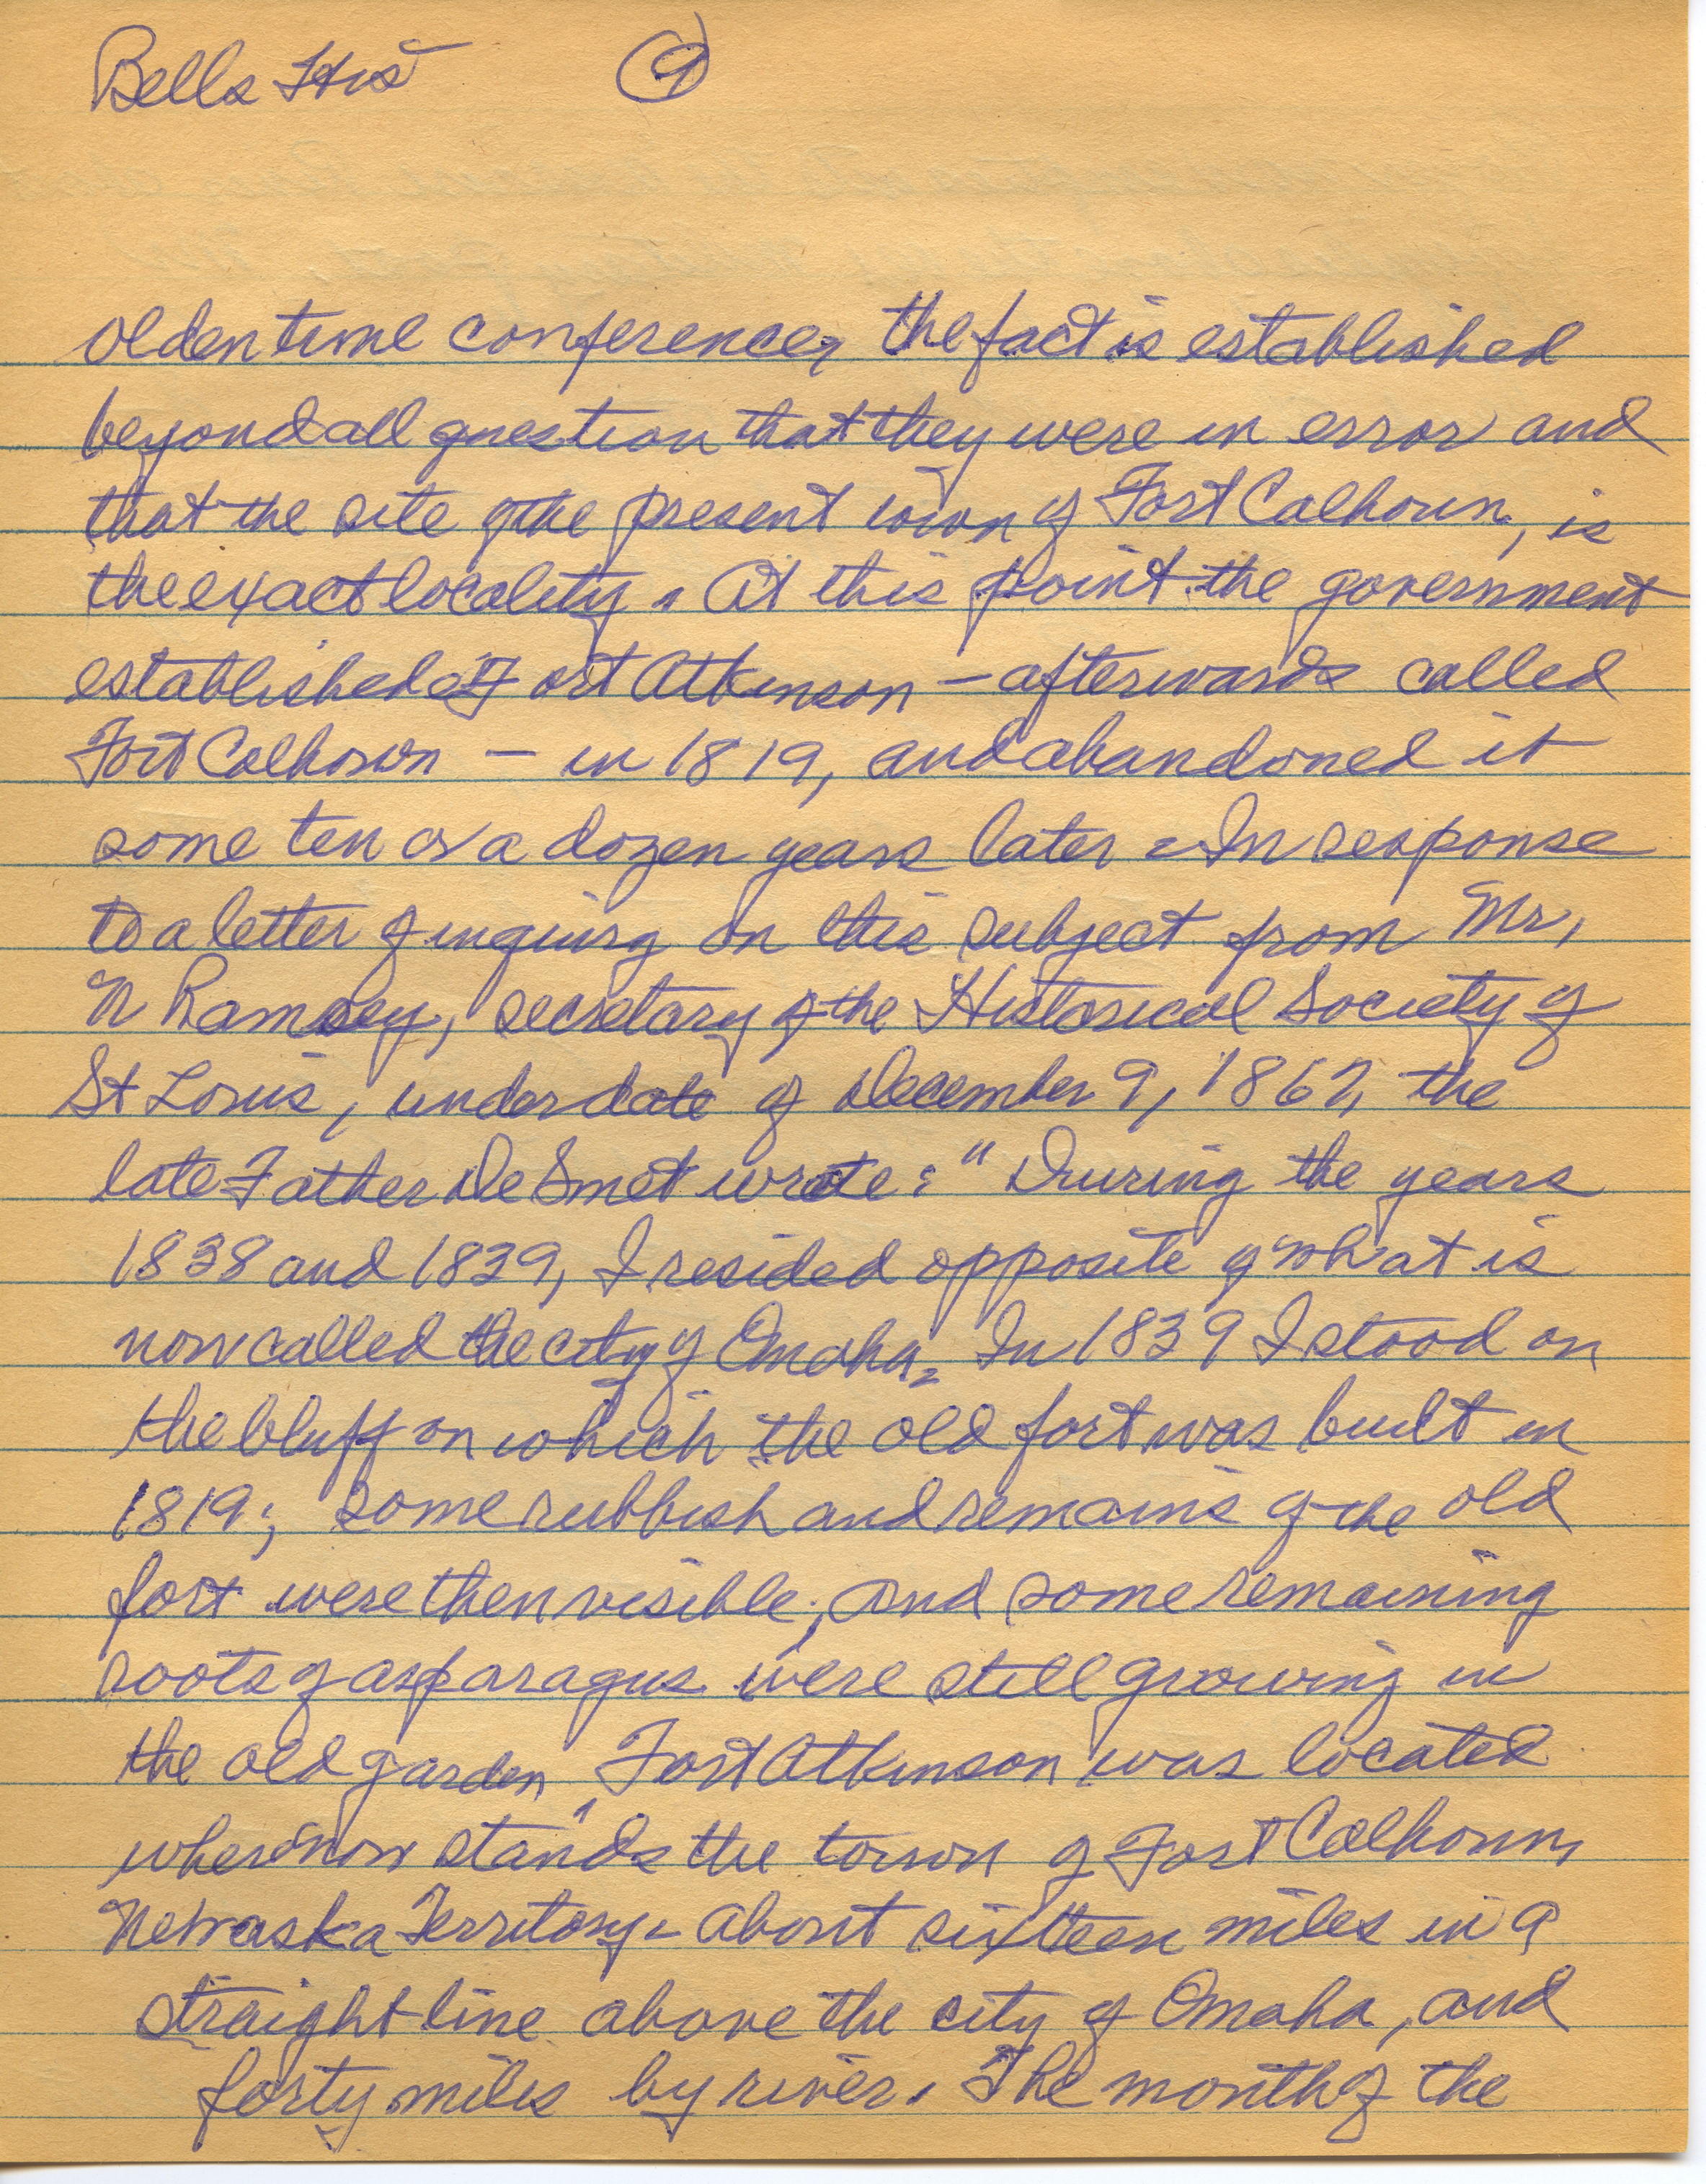 Bells Hist 9
olden time conference, the fact is established
beyond all question that they were in error and
that the site of the present town of Fort Calhoun, is
the exact locality. At this point the government
established Fort Atkinson – afterwards called
Fort Calhoun – in 1819, and abandoned it
some ten or a dozen years later. In response
to a letter of inquiry on this subject from Mr,
N Ramsey, secretary of the Historical Society of
St Louis, under date of December 9, 1867, the
late Father De Smet wrote: "During the years
1838 and 1839, I resided opposite of what is
now called the city of Omaha. In 1839 I stood on
the bluff on which the old fort was built in
1819; some rubbish and remains of the old
fort were then visible; and some remaining
roots of asparagus were still growing in
the old garden. Fort Atkinson was located
where now stands the town of Fort Calhoun,
Nebraska Territory. about sixteen miles in a
straight line above the city of Omaha, and
forty miles by river. The month of the